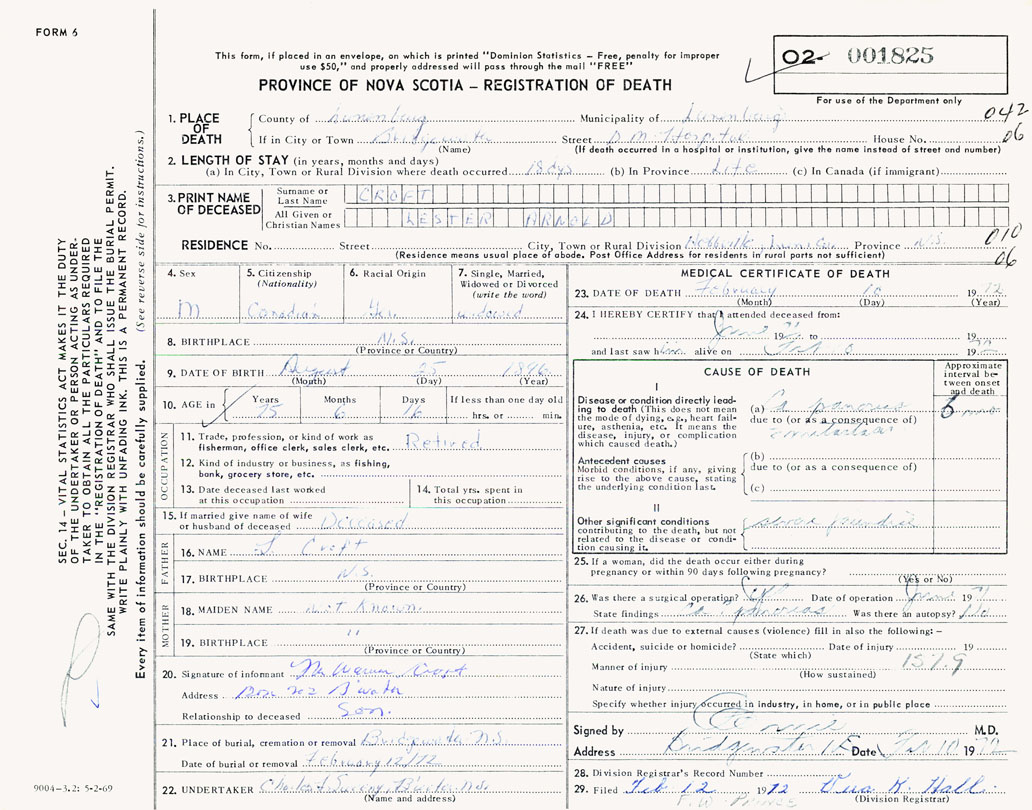 FORM 6
This form, if placed in an envelope, on which is printed "Dominion Statistics – Free, penalty for improper
use $50," and properly addressed will pass through the mail "FREE"
PROVINCE OF NOVA SCOTIA – REGISTRATION OF DEATH
02- 001825
For use of the Department only
042
06
1. PLACE OF DEATH
County of Lunenburg Municipality of Lunenburg
If in City or Town Bridgewater Street D. M. Hospital House No.
(Name) (If death occurred in a hospital or institution, give the name instead of street and number)
2. LENGTH OF STAY (in years, months and days)
(a) In City, Town or Rural Division where death occurred 18 dys (b) In Province Life (c) In Canada (if immigrant)
3. PRINT NAME OF DECEASED
Surname or Last Name CROFT
All Given or Christian Names LESTER ARNOLD
RESIDENCE No. Street City, Town or Rural Division Hebbville Lun. Co. Province N.S.
(Residence means usual place of abode. Post Office Address for residents in rural parts not sufficient)
010
06
4. Sex M
5. Citizenship (Nationality) Canadian
6. Racial Origin Ger.
7. Single, Married, Widowed or Divorced (write the word) widowed
8. BIRTHPLACE N.S.
(Province or Country)
9. DATE OF BIRTH August 25 1896
(Month) (Day) (Year)
10. AGE in Years 75 Months 6 Days 16 If less than one day old hrs. or min.
OCCUPATION
11. Trade, profession, or kind of work as fisherman, office clerk, sales clerk, etc. Retired
12. Kind of industry or business, as fishing, bank, grocery store, etc.
13. Date deceased last worked at this occupation
14. Total yrs. spent in this occupation
15. If married give name of wife or husband of deceased Deceased
FATHER
16. NAME Croft
17. BIRTHPLACE N.S.
(Province or Country)
MOTHER
18. MAIDEN NAME Not Known
19. BIRTHPLACE "
(Province or Country)
20. Signature of informant Mr Warren Croft
Address Box 202 B'water
Relationship to deceased Son.
21. Place of burial, cremation or removal Bridgewater N.S.
Date of burial or removal February 12/72
22. UNDERTAKER
(Name and address)
MEDICAL CERTIFICATE OF DEATH
23. DATE OF DEATH February 10 1972
(Month) (Day) (Year)
24. I HEREBY CERTIFY that I attended deceased from:
June 71 to 19
and last saw him alive on Feb 19
CAUSE OF DEATH
Approximate interval between onset and death
I
Disease or condition directly leading to death (This does not mean the mode of dying, e.g., heart failure, asthenia, etc. It means the disease, injury, or complication which caused death.)
(a) Ca pancreas 6 mo
due to (or as a consequence of)
Antecedent causes
Morbid conditions, if any, giving rise to the above cause, stating the underlying condition last.
(b)
due to (or as a consequence of)
(c)
II
Other significant conditions contributing to the death, but not related to the disease or condition causing it.
severe jaundice
25. If a woman, did the death occur either during pregnancy or within 90 days following pregnancy?
(Yes or No)
26. Was there a surgical operation? Date of operation June 1971
State findings Ca pancreas Was there an autopsy? No
27. If death was due to external causes (violence) fill in also the following: –
Accident, suicide or homicide? Date of injury 19
(State which)
Manner of injury 157.9
(How sustained)
Nature of injury
Specify whether injury occurred in industry, in home, or in public place
Signed by M.D.
Address Bridgewater Date Feb 10 1972
28. Division Registrar's Record Number
29. Filed Feb 12 1972 Hall
(Division Registrar)
SEC. 14 – VITAL STATISTICS ACT MAKES IT THE DUTY
OF THE UNDERTAKER OR PERSON ACTING AS UNDER-
TAKER TO OBTAIN ALL THE PARTICULARS REQUIRED
IN THE "REGISTRATION OF DEATH" AND TO FILE THE
SAME WITH THE DIVISION REGISTRAR WHO SHALL ISSUE THE BURIAL PERMIT.
WRITE PLAINLY WITH UNFADING INK. THIS IS A PERMANENT RECORD.
Every item of information should be carefully supplied. (See reverse side for instructions.)
9004-3.2: 5-2-69